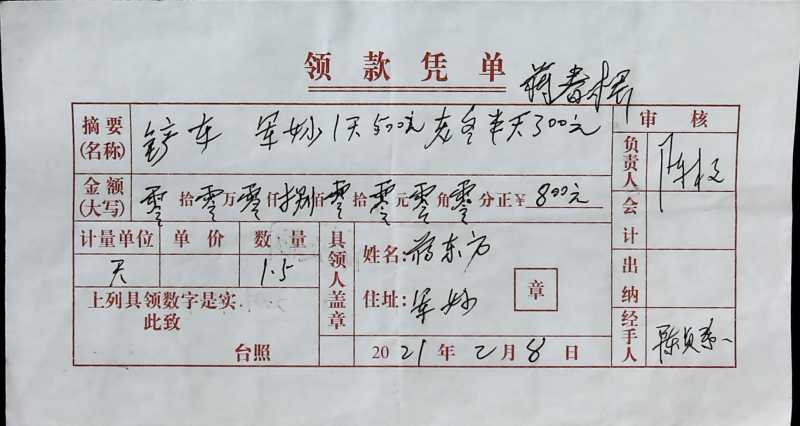 领款凭单
摘要(名称) 铲车 1天500元 半天300元
审核
负责人
金额(大写) 零拾零万零仟捌佰零拾零元零角零分正¥800元
会计
计量单位 单价 数量
天 1.5
具领人盖章
姓名:蒋东方
住址:
章
出纳
上列具领数字是实
此致
台照
2021年2月8日
经手人